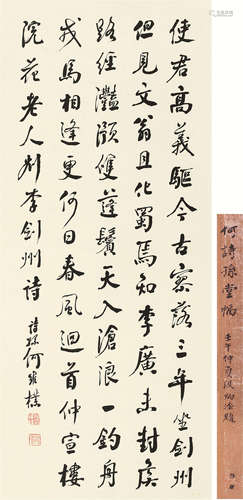 使君高義驅今古寥落三年坐劍州
但見文翁且化蜀焉知李廣未封侯
路經灩澦雙蓬鬢天入滄浪一釣舟
戎馬相逢更何日春風迴首仲宣樓
浣花老人別李劍州詩
詩孫何維樸
何詩孫堂幅
壬午仲夏